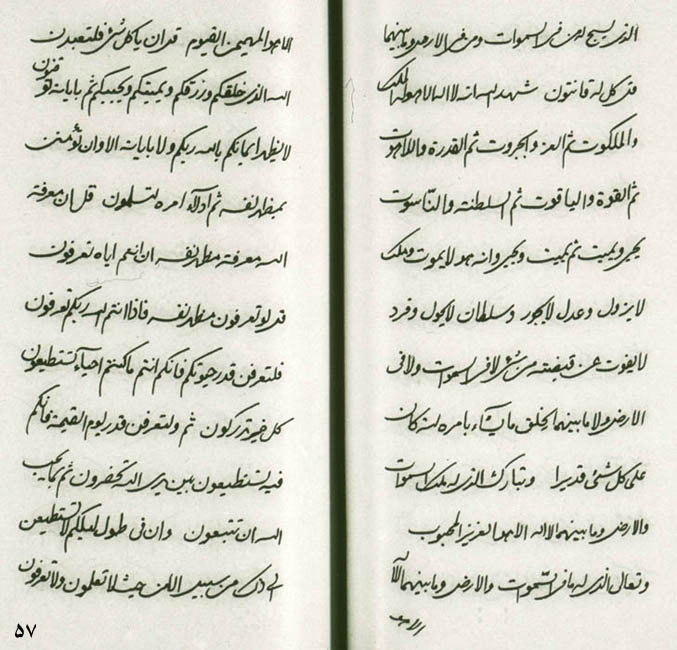 الذی یسجد له من فی السموات ومن فی الارض وما بینهما
قل کل له قانتون شهد الله انه لا اله الا هو له الملک
والملکوت ثم العز والجبروت ثم القدرة واللاهوت
ثم القوة والیاقوت ثم السلطنة والناسوت
یحیی ویمیت ثم یمیت ویحیی وانه هو لا یموت وملک
لا یزول وعدل لا یجور وسلطان لا یحول وفرد
لا یفوت عن قبضته من شیء لا فی السموات ولا فی
الارض ولا ما بینهما یخلق ما یشاء بامره انه کان
علی کل شیء قدیرا وتبارک الذی له ملک السموات
والارض وما بینهما لا اله الا هو العزیز المحبوب
وتعالی الذی له ما فی السموات والارض وما بینهما لا اله
الا هو
الا هو المهیمن القیوم قل ان یا کل شیء فلتعبدن
الله الذی خلقکم ورزقکم ویمیتکم ویحییکم ثم بایاته توقنون
لا یظهر ایمانکم بالله ربکم ولا بایاته الا وان تؤمنن
بمظهر نفسه ثم ادلاء امره لتسلمون قل ان معرفة
الله معرفة مظهر نفسه ان انتم ایاه تعرفون
قل لو تعرفون مظهر نفسه فاذا انتم الله ربکم تعرفون
فلتعرفن قدر حیوتکم فانکم انتم ما کنتم احیاء تستطیعون
کل خیر تدرکون ثم ولتعرفن قدر یوم القیمة فانکم
فیه تستطیعون بین یدی الله تحضرون ثم بما یحب
الله ان تتبعون وان فی طول لیلکم لا تستطیعن
الی ذلک من سبیل اللن حینئذ لا تعلمون ولا تعرفون
۵۷